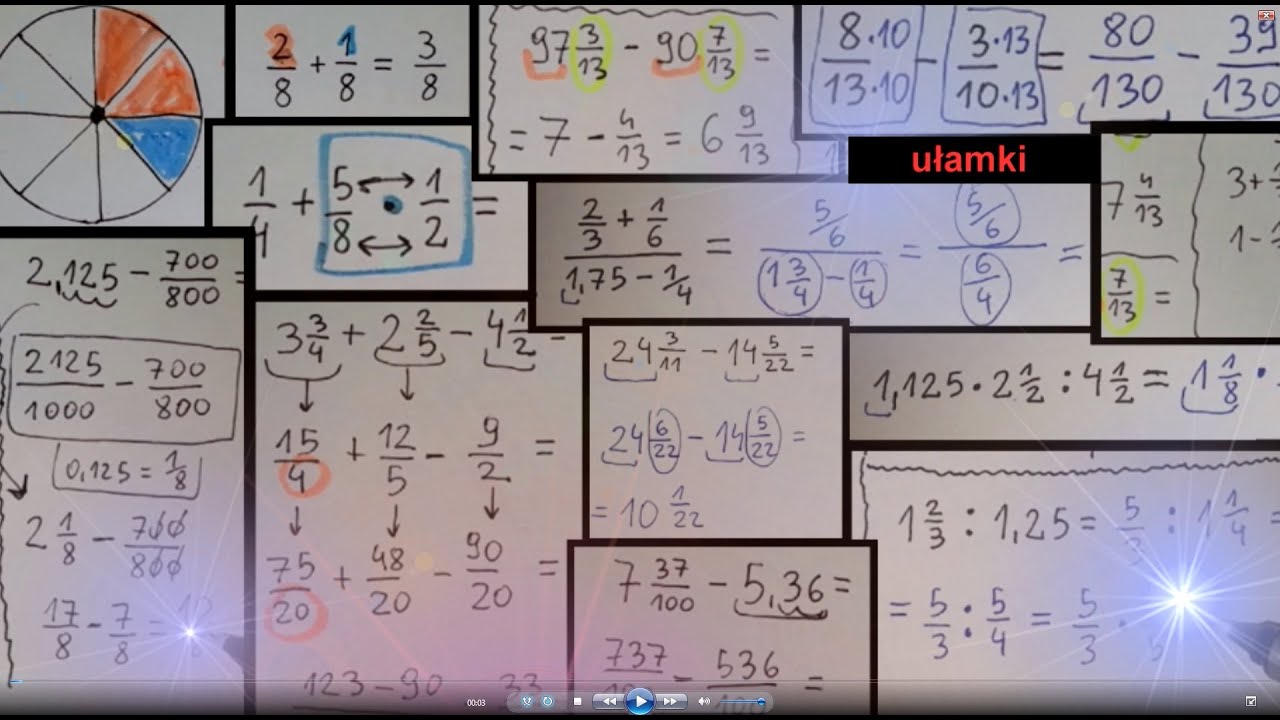 2/8 + 1/8 = 3/8
97 3/13 - 90 7/13 =
= 7 - 4/13 = 6 9/13
8·10/13·10 - 3·13/10·13 = 80/130 - 39/130
ułamki
1/4 + 5/8 · 1/2 =
(2/3 + 1/6)/(1,75 - 1/4) = (5/6)/(1 3/4 - 1/4) = (5/6)/(6/4) =
7 4/13
7/13 =
3+
1-
2,125 - 700/800 =
2125/1000 - 700/800
0,125 = 1/8
2 1/8 - 700/800
17/8 - 7/8 =
3 3/4 + 2 2/5 - 4 1/2 =
15/4 + 12/5 - 9/2 =
75/20 + 48/20 - 90/20 =
123 - 90 33
24 3/11 - 14 5/22 =
24 6/22 - 14 5/22 =
= 10 1/22
1,125 · 2 1/2 : 4 1/2 = 1 1/8 ·
7 37/100 - 5,36 =
737 - 536/100 =
1 2/3 : 1,25 = 5/3 : 1 1/4 =
= 5/3 : 5/4 = 5/3 ·
00:03